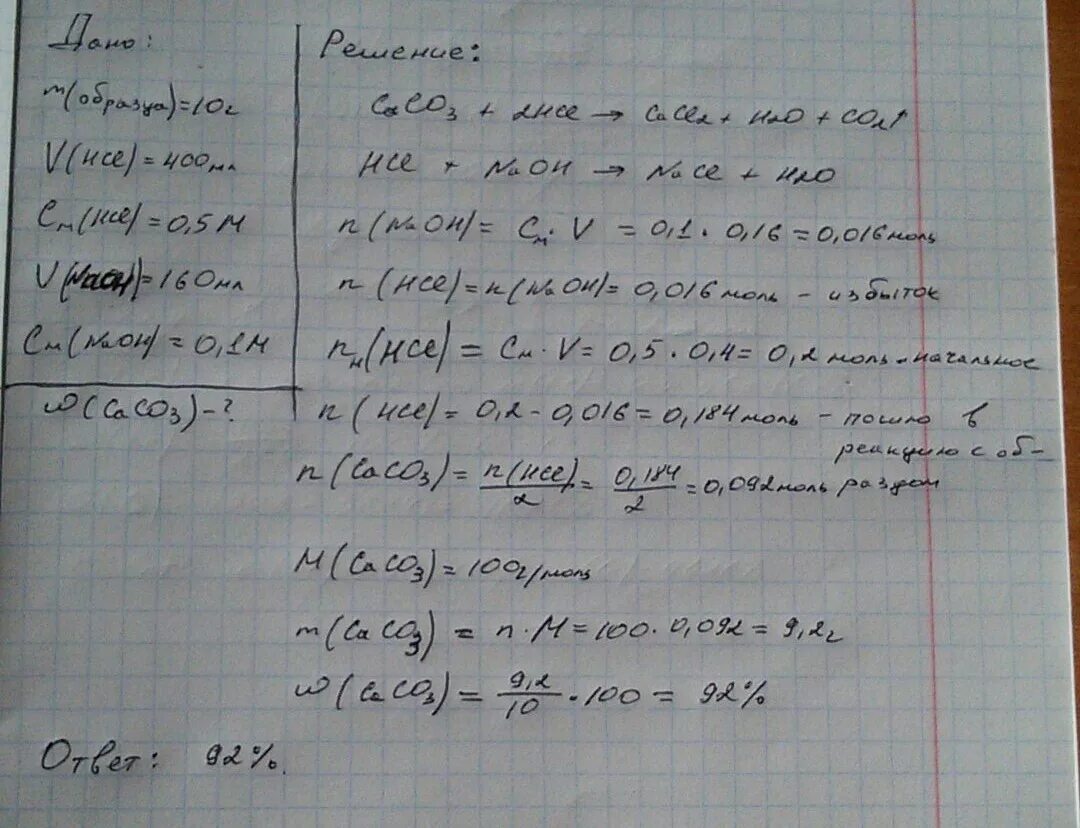 Дано:
m(образца)=10г
V(HCl)=400мл
Cм(HCl)=0,5М
V(NaOH)=160мл
Cм(NaOH)=0,1М
ω(CaCO3)-?
Решение:
CaCO3 + 2HCl → CaCl2 + H2O + CO2↑
HCl + NaOH → NaCl + H2O
n(NaOH)= Cм·V = 0,1·0,16=0,016моль
n(HCl)=n(NaOH)=0,016моль - избыток
nн(HCl)= Cм·V=0,5·0,4=0,2 моль - начальное
n(HCl)=0,2-0,016=0,184моль - пошло в
реакцию с об-
n(CaCO3)= n(HCl)/2 = 0,184/2 =0,092моль разцом
M(CaCO3)=100г/моль
m(CaCO3) = n·M=100·0,092=9,2г
ω(CaCO3)= 9,2/10 ·100 = 92%
Ответ: 92%.